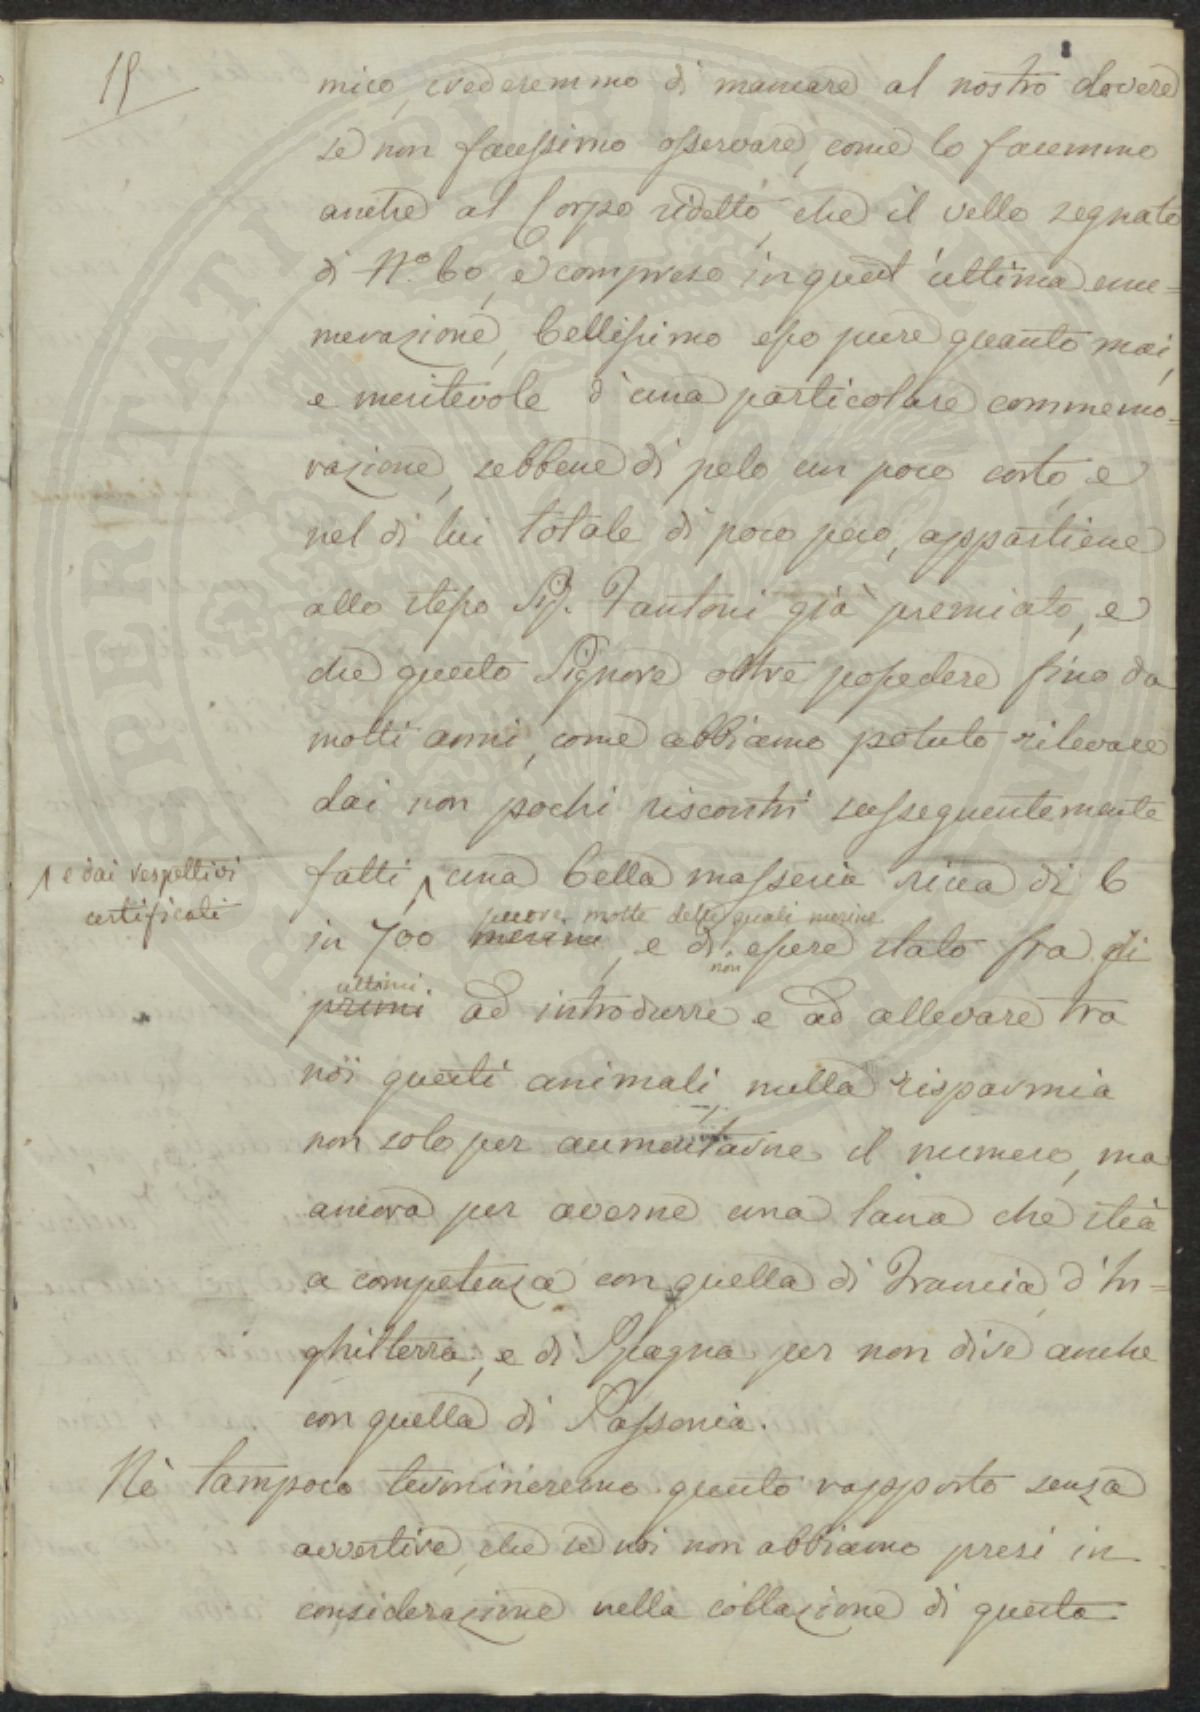 15
mico, crederemmo di mancare al nostro dovere
se non facessimo osservare, come lo facemmo
anche al Corpo ridetto, che il vello segnato
di N.º 60, e compreso in quest'ultima enu=
merazione, bellissimo esso pure quanto mai,
e meritevole d'una particolare commemo=
razione, sebbene di pelo un poco corto, e
nel di lui totale di poco peso, appartiene
allo stesso Sig. Fantoni già premiato, e
che questo Signore oltre possedere fino da
molti anni, come abbiamo potuto rilevare
dai non pochi riscontri susseguentemente
fatti, una bella masseria ricca di 6
e dai respettivi
certificati
pecore, molte delle quali merine
in 700 merine, e di essere stato fra gli
non
ultimi
primi ad introdurre e ad allevare tra
noi questi animali, nulla risparmia
non solo per aumentarne il numero, ma
ancora per averne una lana che stia
a competenza con quella di Francia, d'In=
ghilterra, e di Spagna per non dire anche
con quella di Sassonia.
Nè tampoco termineremo questo rapporto senza
avvertire, che se noi non abbiamo presi in
considerazione nella collazione di questa